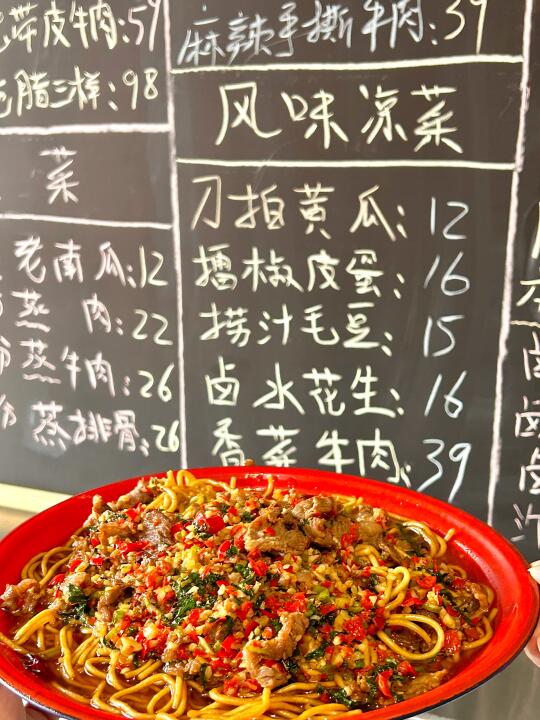 带皮牛肉:59
腊三样:98
菜
老南瓜:12
蒸肉:22
蒸牛肉:26
蒸排骨:26
麻辣手撕牛肉:39
风味凉菜
刀拍黄瓜:12
擂椒皮蛋:16
捞汁毛豆:15
卤水花生:16
香菜牛肉:39
卤
卤
卤
汁